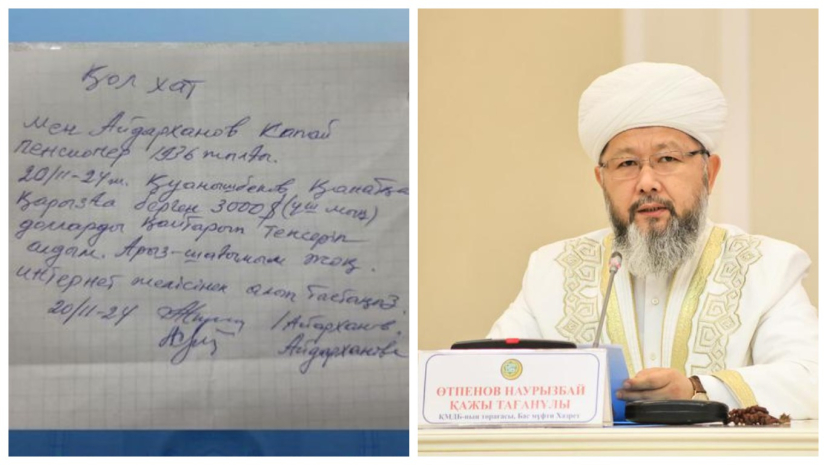 Қол хат
мен Айдарханов Капай
пенсионер 1936 жылғы.
20/11-24ж. Қуанышбеков Қанатқа
қарызға берген 3000$ (үш мың)
долларды қайтарып тексеріп
алдым. Арыз-шағыным жоқ.
интернет желісінен алып тастаңыз.
20/11-24 /Айдарханов.
Айдарханова
ӨТПЕНОВ НАУРЫЗБАЙ
ҚАЖЫ ТАҒАНҰЛЫ
ҚМДБ-ның төрағасы, Бас мүфти Хазрет